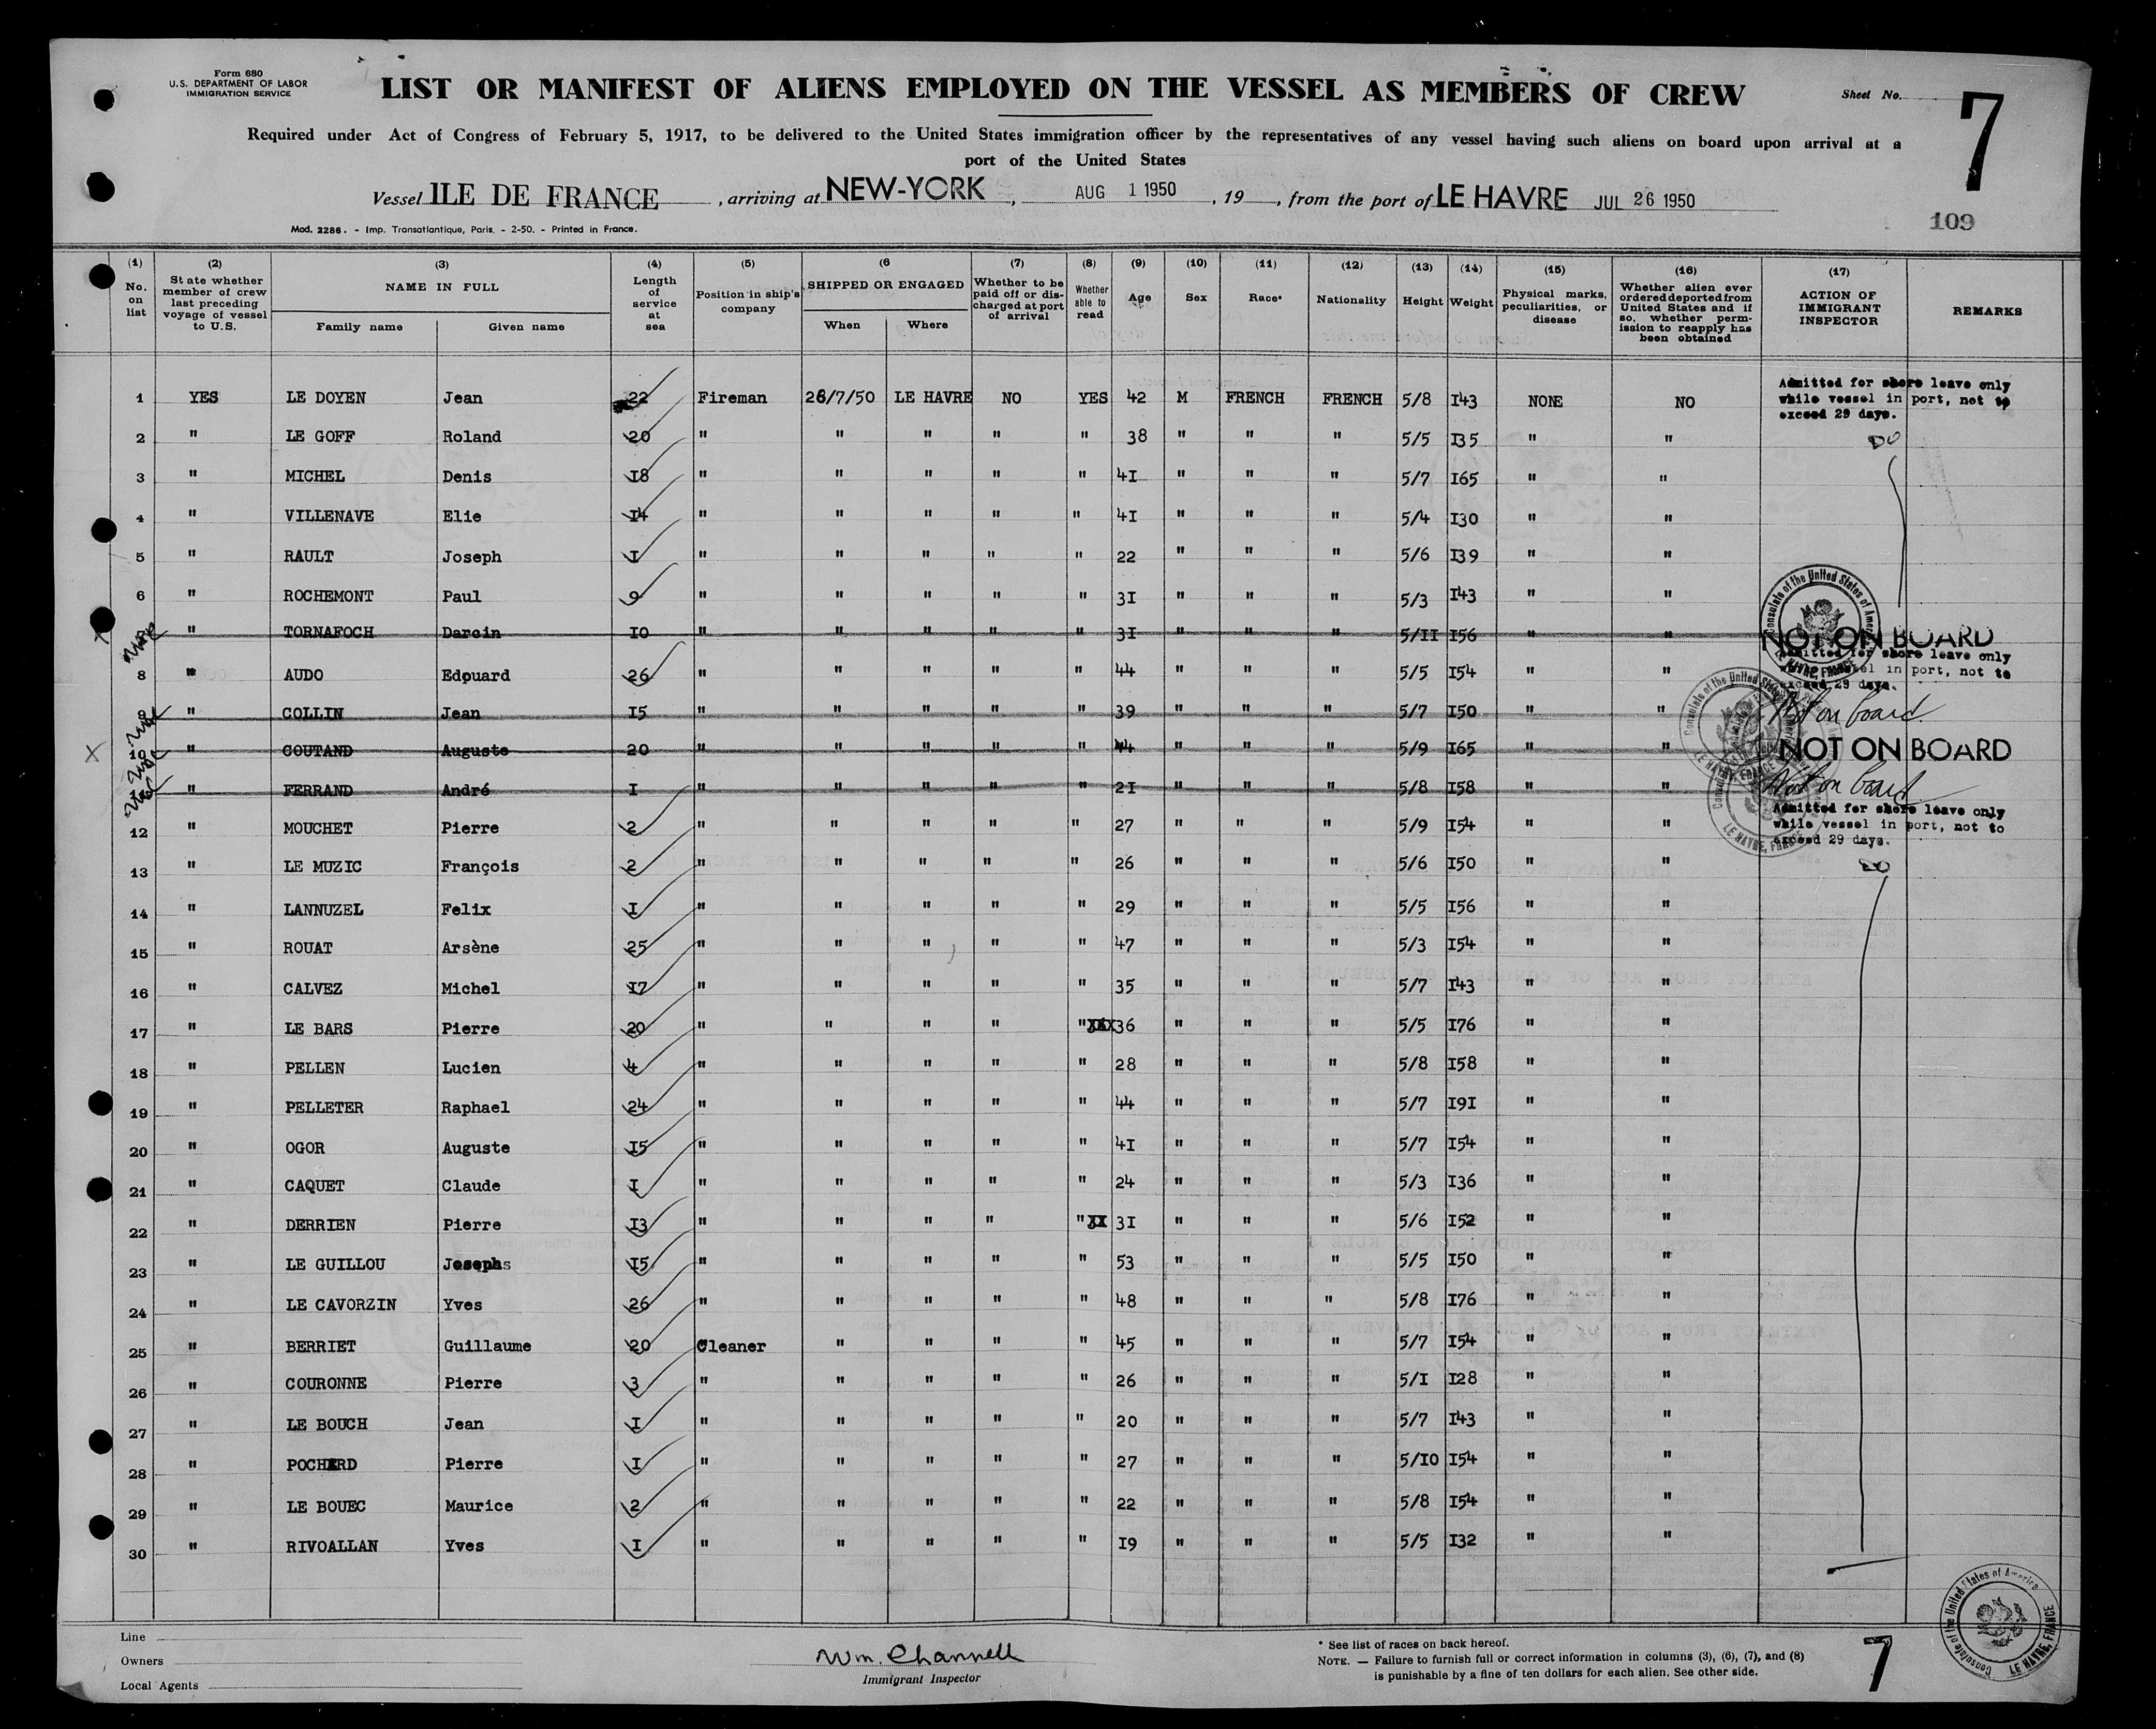 Form 680
U.S. DEPARTMENT OF LABOR
IMMIGRATION SERVICE
LIST OR MANIFEST OF ALIENS EMPLOYED ON THE VESSEL AS MEMBERS OF CREW
Sheet No. 7
Required under Act of Congress of February 5, 1917, to be delivered to the United States immigration officer by the representatives of any vessel having such aliens on board upon arrival at a
port of the United States
Vessel ILE DE FRANCE, arriving at NEW-YORK, AUG 1 1950, 19, from the port of LE HAVRE JUL 26 1950
109
Mod. 2286. - Imp. Transatlantique, Paris. - 2-50. - Printed in France.
(1) No. on list (2) State whether member of crew last preceding voyage of vessel to U.S. (3) NAME IN FULL Family name Given name (4) Length of service at sea (5) Position in ship's company (6 SHIPPED OR ENGAGED When Where (7) Whether to be paid off or discharged at port of arrival (8) Whether able to read (9) Age (10) Sex (11) Race* (12) Nationality (13) Height (14) Weight (15) Physical marks, peculiarities, or disease (16) Whether alien ever ordered deported from United States and if so, whether permission to reapply has been obtained (17) ACTION OF IMMIGRANT INSPECTOR REMARKS
1 YES LE DOYEN Jean 22 Fireman 26/7/50 LE HAVRE NO YES 42 M FRENCH FRENCH 5/8 I43 NONE NO Admitted for shore leave only while vessel in port, not to exceed 29 days.
2 " LE GOFF Roland 20 " " " " " 38 " " " 5/5 I35 " " Do
3 " MICHEL Denis I8 " " " " " 4I " " " 5/7 I65 " "
4 " VILLENAVE Elie I4 " " " " " 4I " " " 5/4 I30 " "
5 " RAULT Joseph I " " " " " 22 " " " 5/6 I39 " "
6 " ROCHEMONT Paul 9 " " " " " 3I " " " 5/3 I43 " "
7 " TORNAFOCH Darcin I0 " " " " " 3I " " " 5/II I56 " " NOT ON BOARD
8 " AUDO Edouard 26 " " " " " 44 " " " 5/5 I54 " " Admitted for shore leave only while vessel in port, not to exceed 29 days.
9 " COLLIN Jean I5 " " " " " 39 " " " 5/7 I50 " " Not on board
10 " COUTAND Auguste 20 " " " " " 44 " " " 5/9 I65 " " NOT ON BOARD
11 " FERRAND André I " " " " " 2I " " " 5/8 I58 " " Not on board
12 " MOUCHET Pierre 2 " " " " " 27 " " " 5/9 I54 " " Admitted for shore leave only while vessel in port, not to exceed 29 days.
13 " LE MUZIC François 2 " " " " " 26 " " " 5/6 I50 " " Do
14 " LANNUZEL Felix I " " " " " 29 " " " 5/5 I56 " "
15 " ROUAT Arsène 25 " " " " " 47 " " " 5/3 I54 " "
16 " CALVEZ Michel I7 " " " " " 35 " " " 5/7 I43 " "
17 " LE BARS Pierre 20 " " " " " 36 " " " 5/5 I76 " "
18 " PELLEN Lucien 4 " " " " " 28 " " " 5/8 I58 " "
19 " PELLETER Raphael 24 " " " " " 44 " " " 5/7 I9I " "
20 " OGOR Auguste I5 " " " " " 4I " " " 5/7 I54 " "
21 " CAQUET Claude I " " " " " 24 " " " 5/3 I36 " "
22 " DERRIEN Pierre I3 " " " " " 3I " " " 5/6 I52 " "
23 " LE GUILLOU Joseph I5 " " " " " 53 " " " 5/5 I50 " "
24 " LE CAVORZIN Yves 26 " " " " " 48 " " " 5/8 I76 " "
25 " BERRIET Guillaume 20 Cleaner " " " " 45 " " " 5/7 I54 " "
26 " COURONNE Pierre 3 " " " " " 26 " " " 5/I I28 " "
27 " LE BOUCH Jean I " " " " " 20 " " " 5/7 I43 " "
28 " POCHARD Pierre I " " " " " 27 " " " 5/I0 I54 " "
29 " LE BOUEC Maurice 2 " " " " " 22 " " " 5/8 I54 " "
30 " RIVOALLAN Yves I " " " " " I9 " " " 5/5 I32 " "
Consulate of the United States of America
LE HAVRE, FRANCE
Line
Owners
Local Agents
Wm. Channell
Immigrant Inspector
* See list of races on back hereof.
NOTE. — Failure to furnish full or correct information in columns (3), (6), (7), and (8)
is punishable by a fine of ten dollars for each alien. See other side.
7
Consulate of the United States of America
LE HAVRE, FRANCE